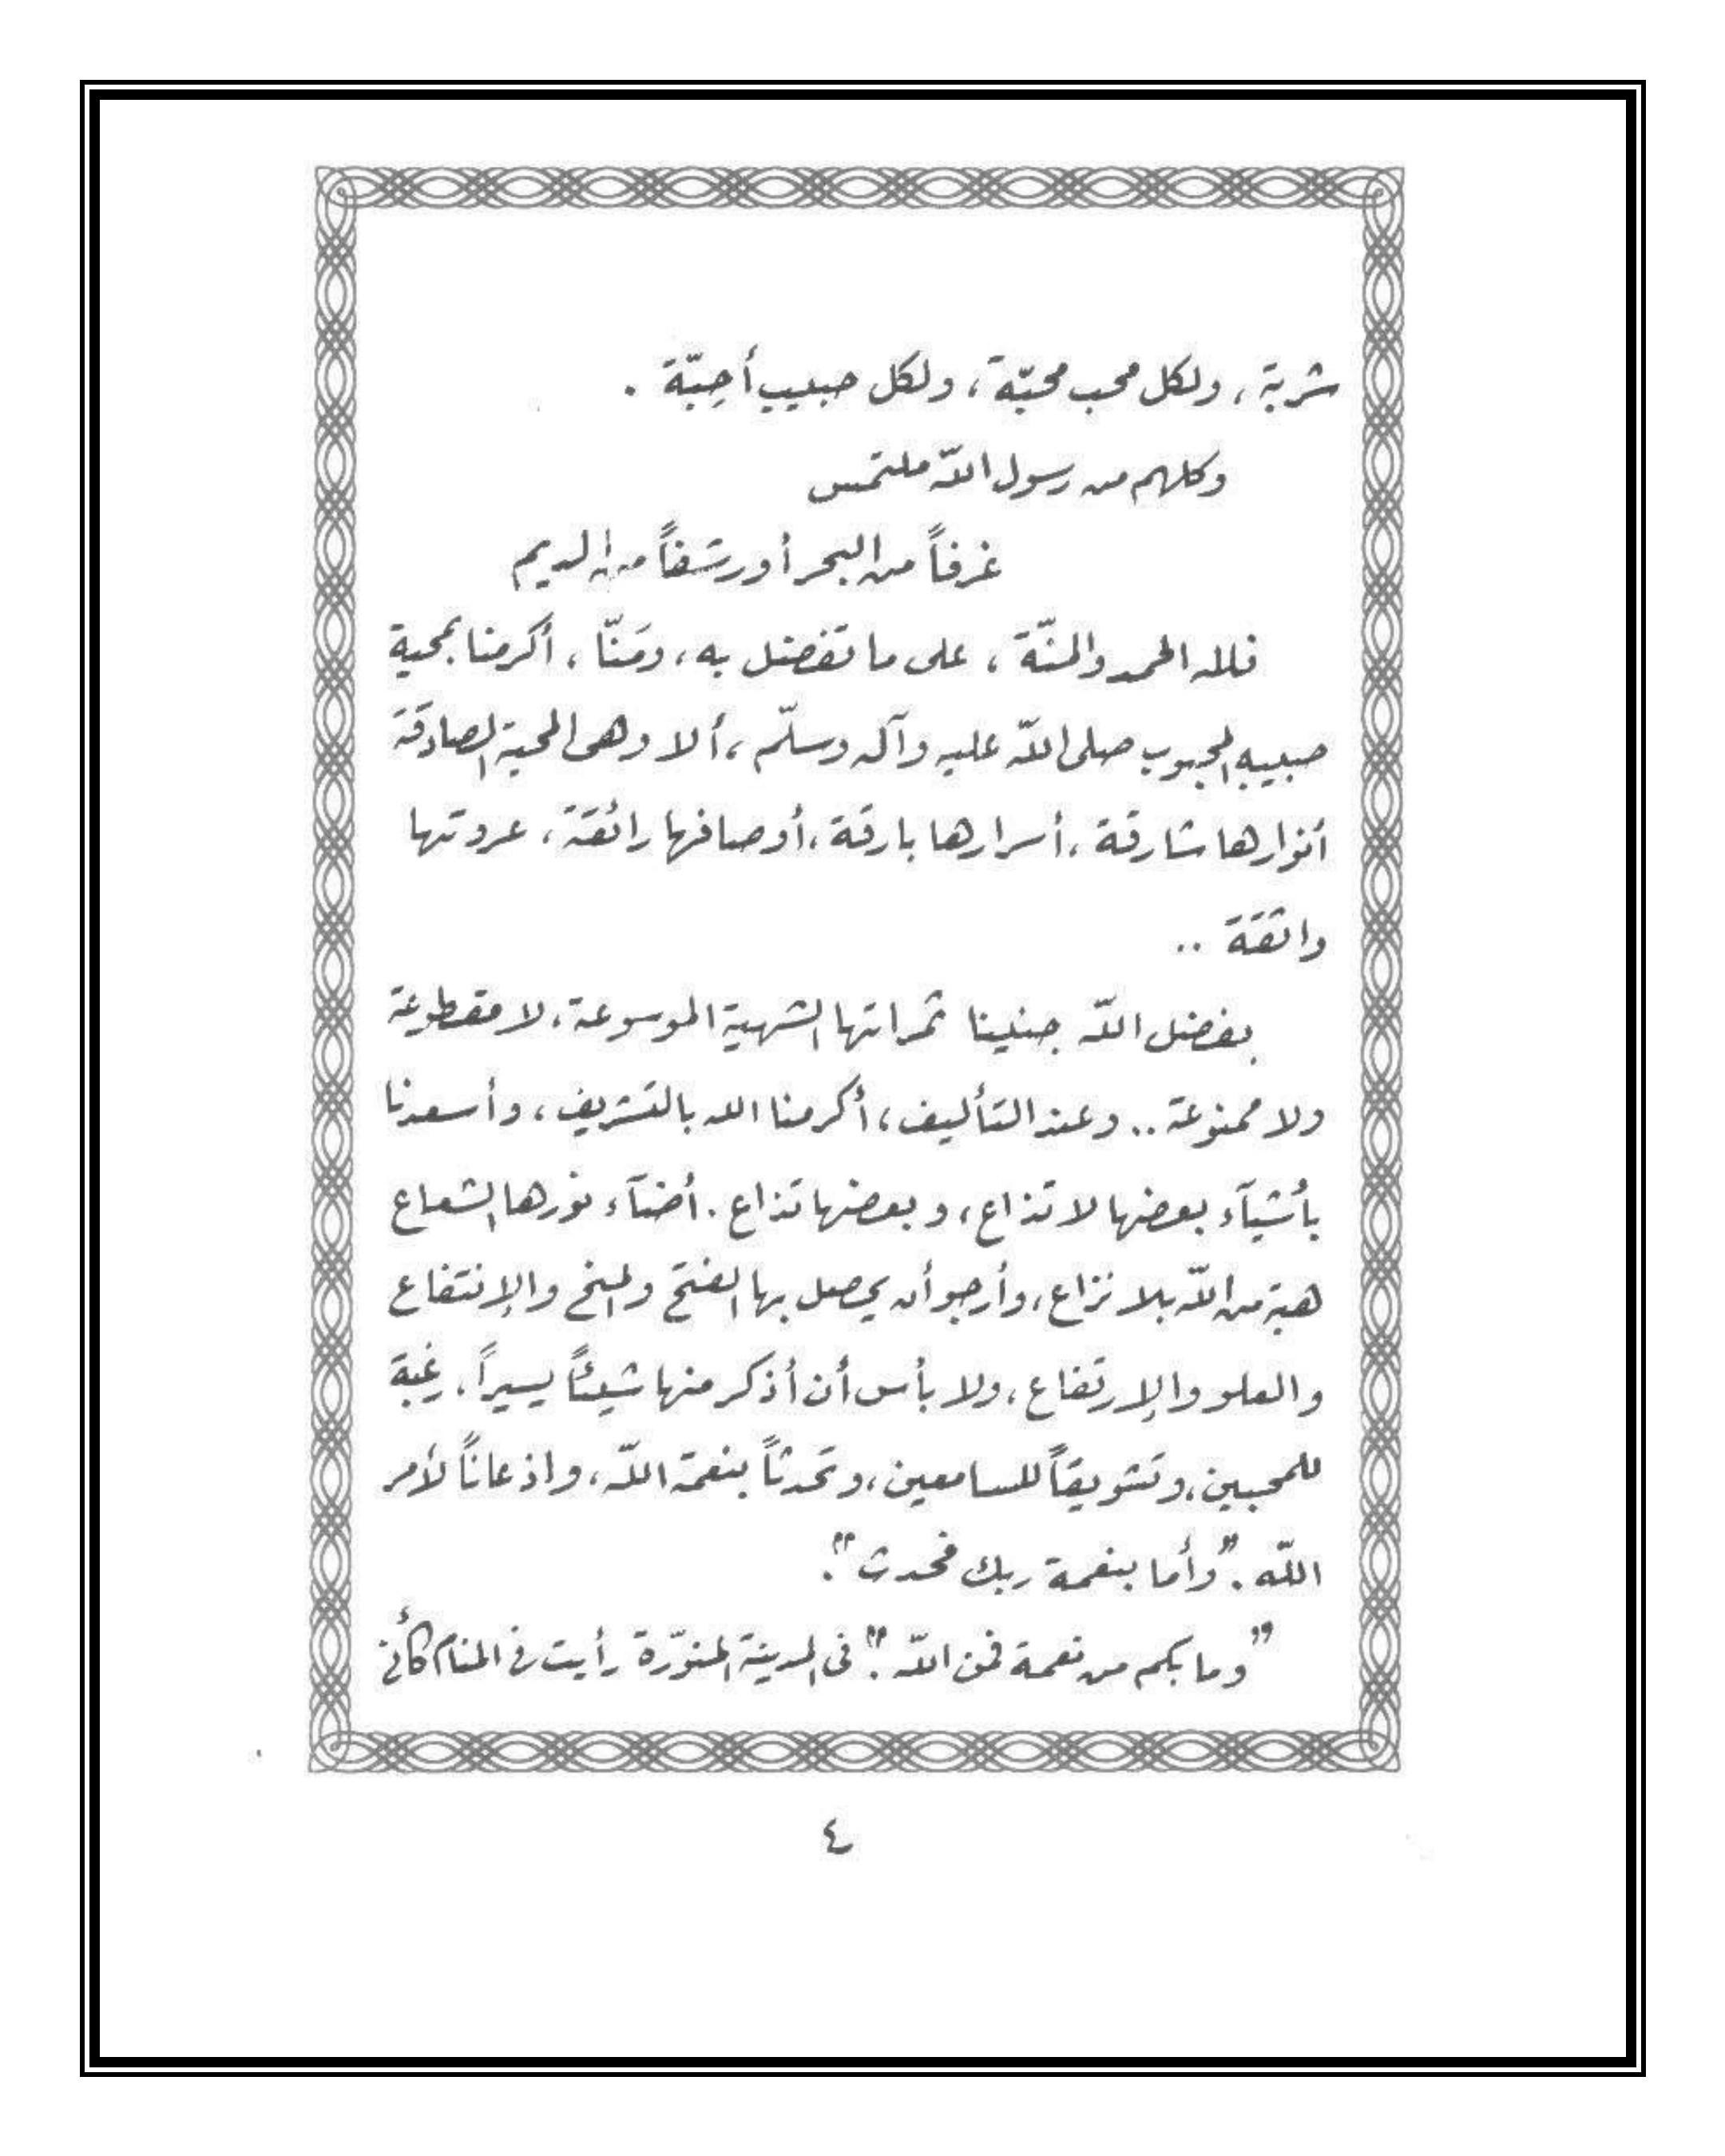 شربة ، ولكل محب محبّة ، ولكل حبيب أحِبّة .
وكلهم من رسول اللّه ملتمس
غرفاً من البحر أو رشفاً من الديم
فلله الحمد والمنّة ، على ما تفضل به ، ومَنّا ، أكرمنا بمحبة
حبيبه المحبوب صلى اللّه عليه وآله وسلّم ، ألا وهى المحبة الصادقة
أنوارها شارقة ، أسرارها بارقة ، أوصافها رائقة ، عروتها
واثقة ..
بفضل اللّه جنينا ثمراتها الشهية الموسوعة ، لا مقطوعة
ولا ممنوعة .. وعند التأليف ، أكرمنا الله بالتشريف ، وأسعدنا
بأشيآء بعضها لا تذاع ، وبعضها تذاع . أضآء نورها الشعاع
هبة من اللّه بلا نزاع ، وأرجو أن يحصل بها الفتح والمنح والإنتفاع
والعلو والإرتفاع ، ولا بأس أن أذكر منها شيئاً يسيراً ، رغبة
للمحبين ، وتشويقاً للسامعين ، وتحدثاً بنعمة اللّه ، واذعاناً لأمر
اللّه . "وأما بنعمة ربك فحدث" .
"وما بكم من نعمة فمن اللّه" . فى المدينة المنوّرة رأيت في المنام كأني
٤